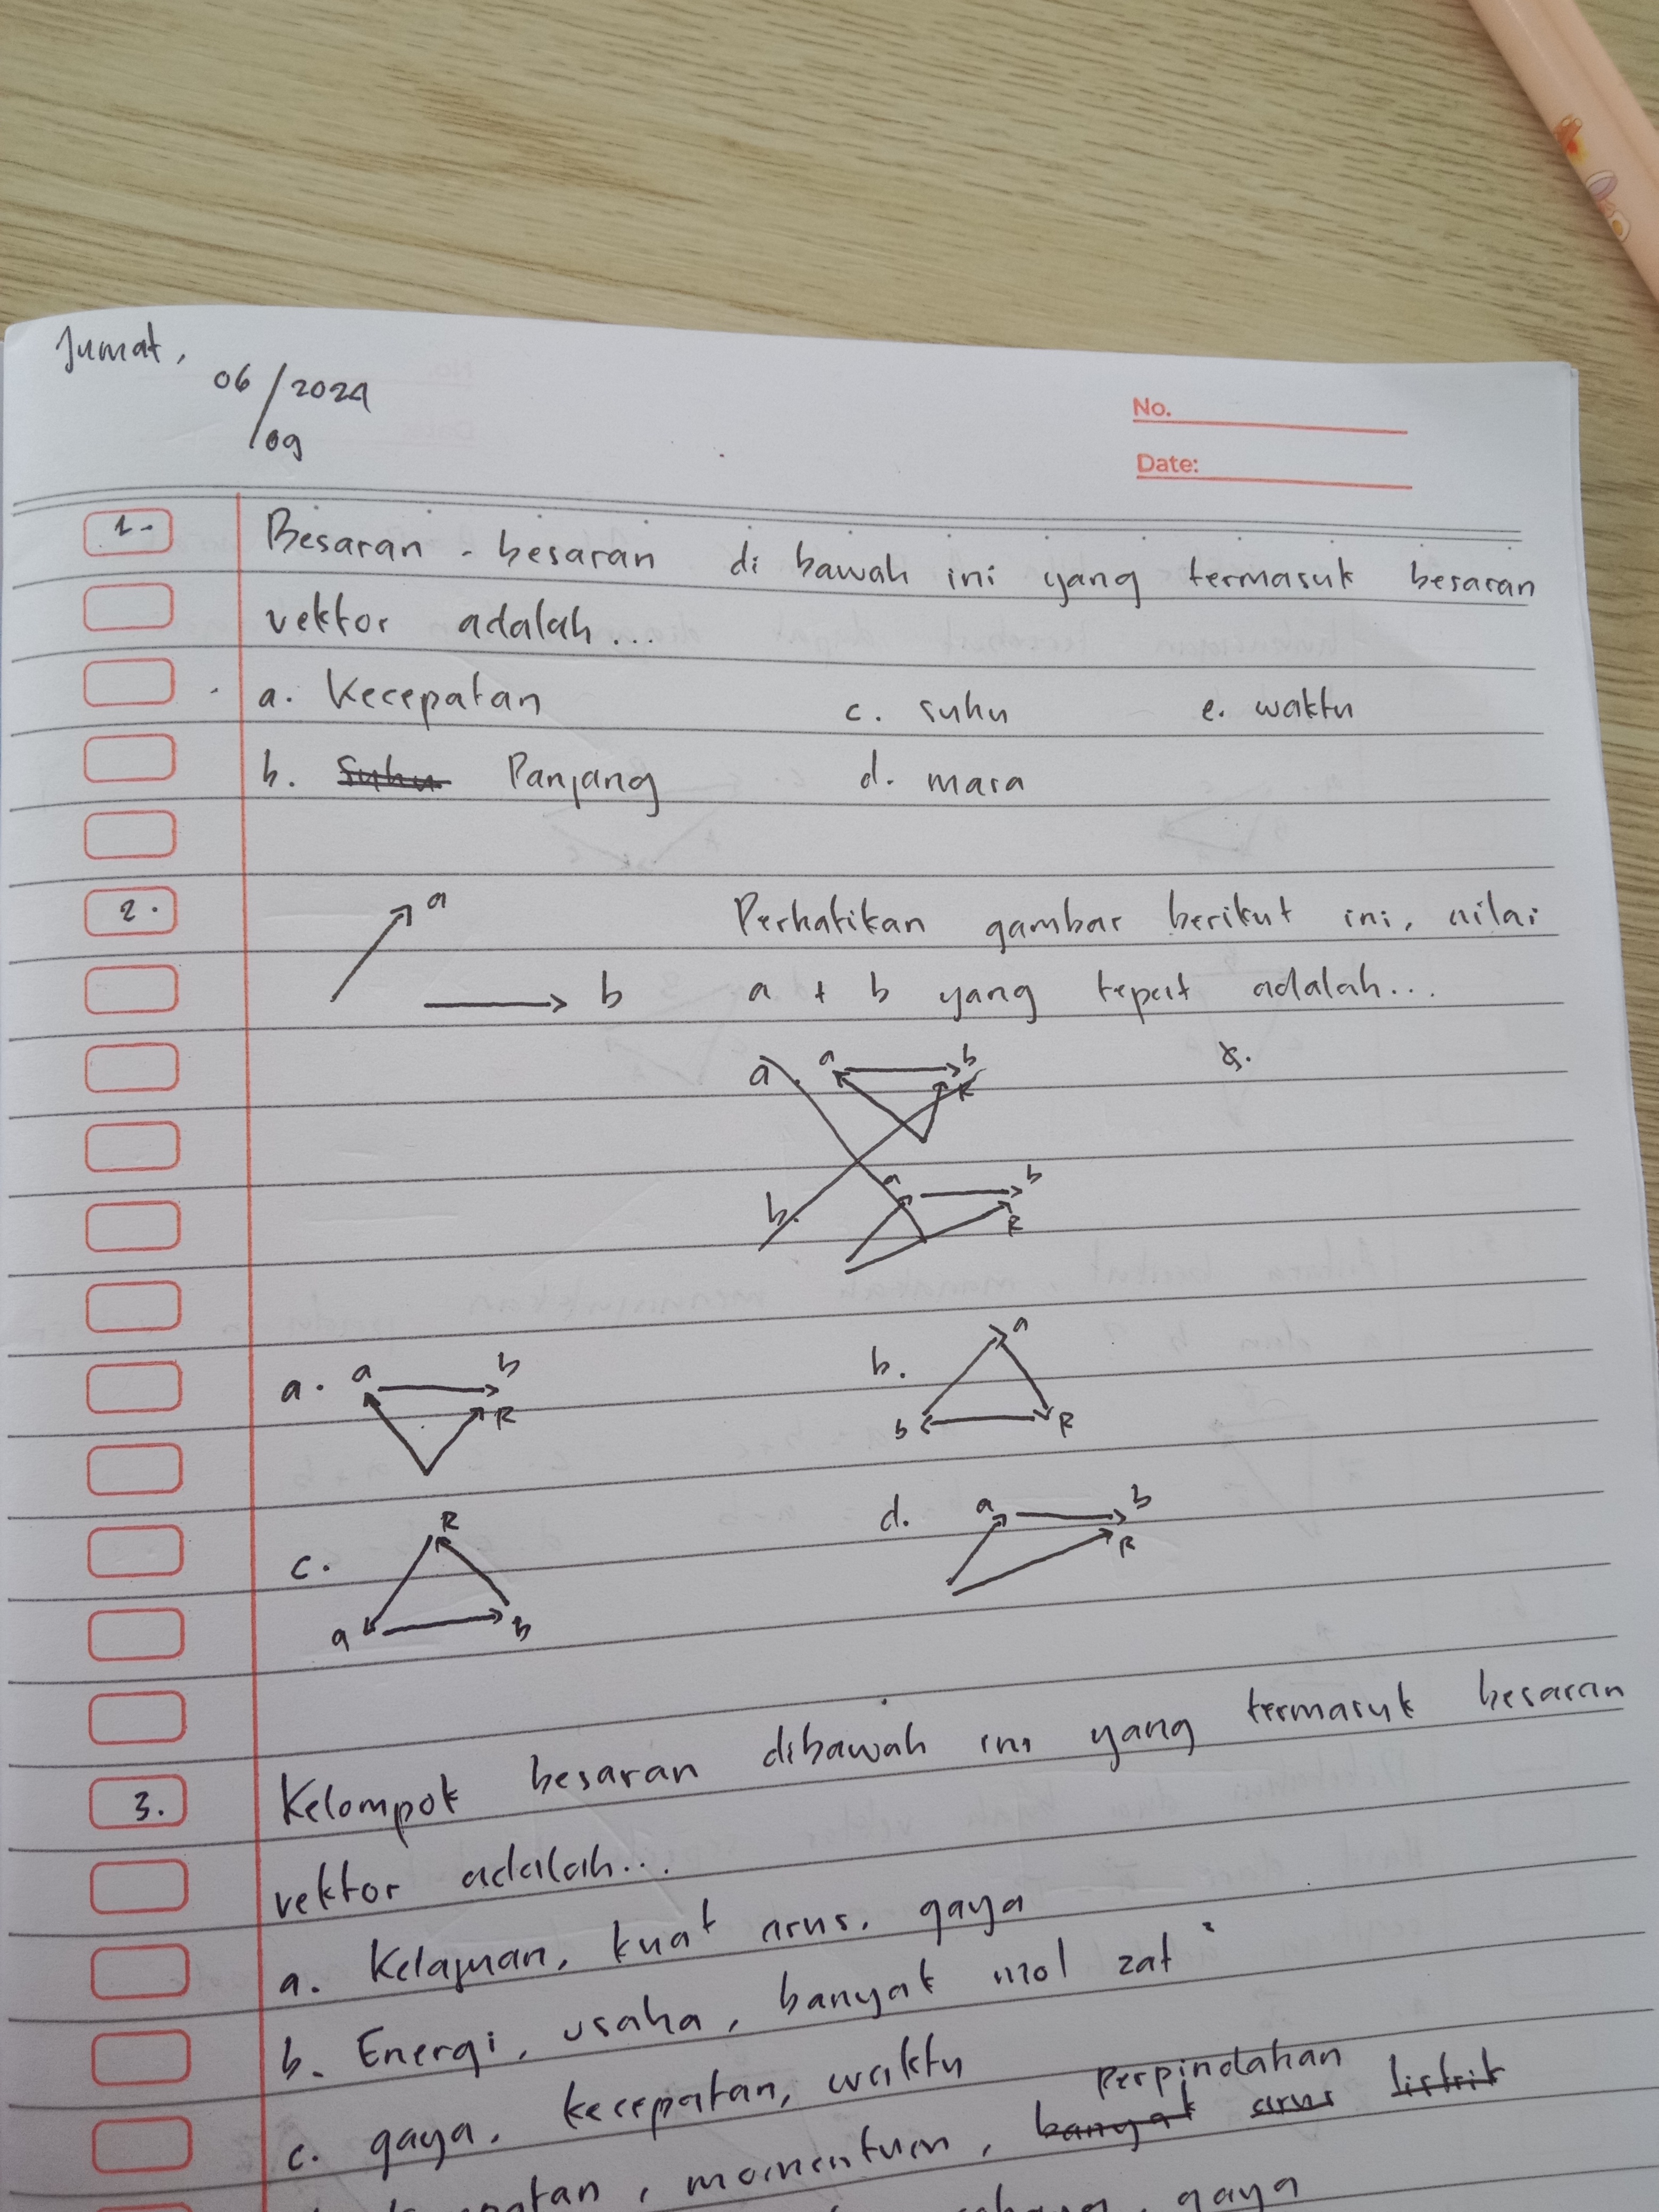 Jumat, 06/09/2024
No.
Date:
1. Besaran - besaran di bawah ini yang termasuk besaran
vektor adalah...
a. Kecepatan c. suhu e. waktu
b. Suhu Panjang d. masa
2. a Perhatikan gambar berikut ini, nilai
b a + b yang tepat adalah...
a. a b
R
b. a b
R
a. a b
R
b. a
b R
c. R
a b
d. a b
R
3. Kelompok besaran dibawah ini yang termasuk besaran
vektor adalah...
a. Kelajuan, kuat arus, gaya
b. Energi, usaha, banyak mol zat
c. gaya, kecepatan, waktu
Perpindahan
momentum, banyak arus listrik
gaya